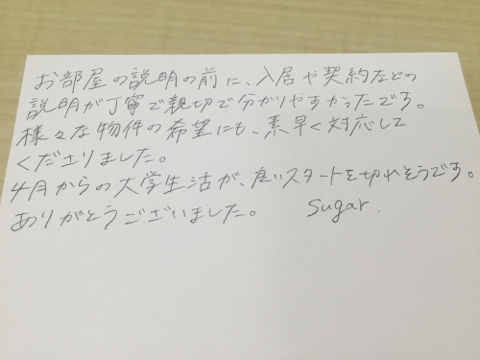 お部屋の説明の前に、入居や契約などの
説明が丁寧で親切で分かりやすかったです。
様々な物件の希望にも、素早く対応して
くださりました。
4月からの大学生活が、良いスタートを切れそうです。
ありがとうございました。 sugar.